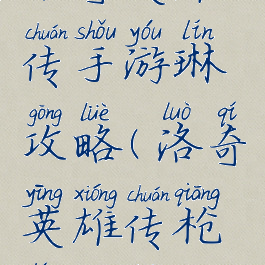 chuán shǒu yóu lín
传手游琳
gōng lüè luò qí
攻略(洛奇
yīng xióng chuán qiāng
英雄传枪